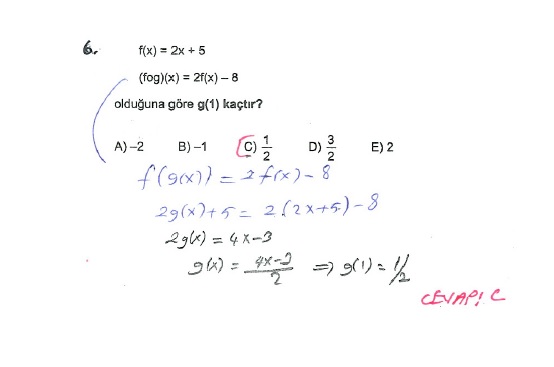 6. f(x) = 2x + 5
(fog)(x) = 2f(x) – 8
olduğuna göre g(1) kaçtır?
A) –2 B) –1 C) 1/2 D) 3/2 E) 2
f(g(x)) = 2f(x) - 8
2g(x)+5 = 2(2x+5)-8
2g(x) = 4x-3
g(x) = 4x-3/2 ⇒ g(1) = 1/2
CEVAP! C